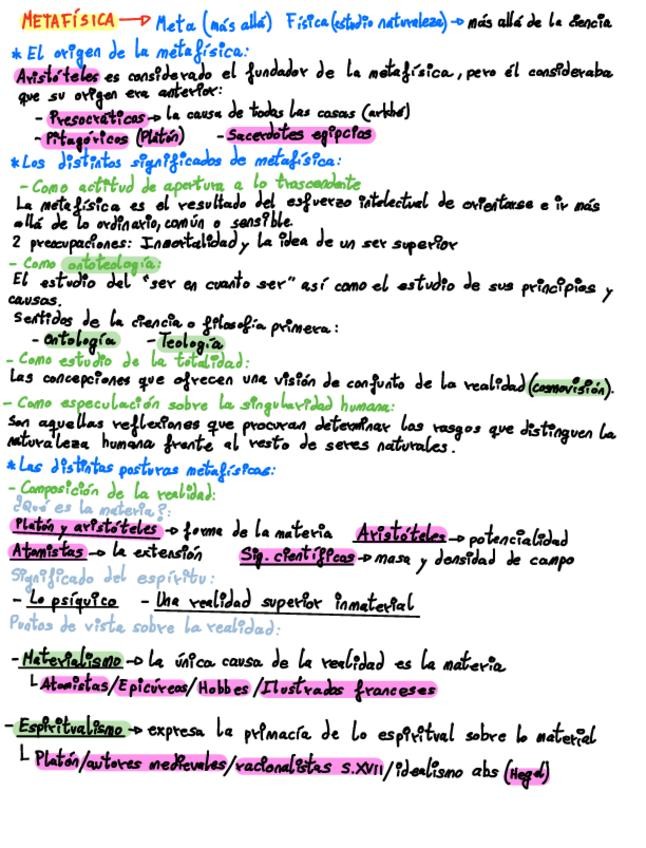 METAFÍSICA → Meta (más allá) Física (estudio naturaleza) → más allá de la ciencia
* El origen de la metafísica:
Aristóteles es considerado el fundador de la metafísica, pero él consideraba
que su origen era anterior:
- Presocráticos → la causa de todas las cosas (arkhé)
- Pitagóricos (Platón) - Sacerdotes egipcios
* Los distintos significados de metafísica:
- Como actitud de apertura a lo trascendente
La metafísica es el resultado del esfuerzo intelectual de orientarse e ir más
allá de lo ordinario, común o sensible.
2 preocupaciones: Inmortalidad y la idea de un ser superior
- Como ontoteología:
El estudio del "ser en cuanto ser" así como el estudio de sus principios y
causas.
Sentidos de la ciencia o filosofía primera:
- Ontología - Teología
- Como estudio de la totalidad:
Las concepciones que ofrecen una visión de conjunto de la realidad (cosmovisión).
- Como especulación sobre la singularidad humana:
Son aquellas reflexiones que procuran determinar los rasgos que distinguen la
naturaleza humana frente al resto de seres naturales.
* Las distintas posturas metafísicas:
- Composición de la realidad:
¿Qué es la materia?:
Platón y aristóteles → forma de la materia Aristóteles → potencialidad
Atomistas → la extensión Sig. científicos → masa y densidad de campo
Significado del espíritu:
- Lo psíquico - Una realidad superior inmaterial
Puntos de vista sobre la realidad:
- Materialismo → la única causa de la realidad es la materia
└ Atomistas/Epicúreos/Hobbes/Ilustrados franceses
- Espiritualismo → expresa la primacía de lo espiritual sobre lo material
└ Platón/autores medievales/racionalistas S.XVII/idealismo abs (Hegel)